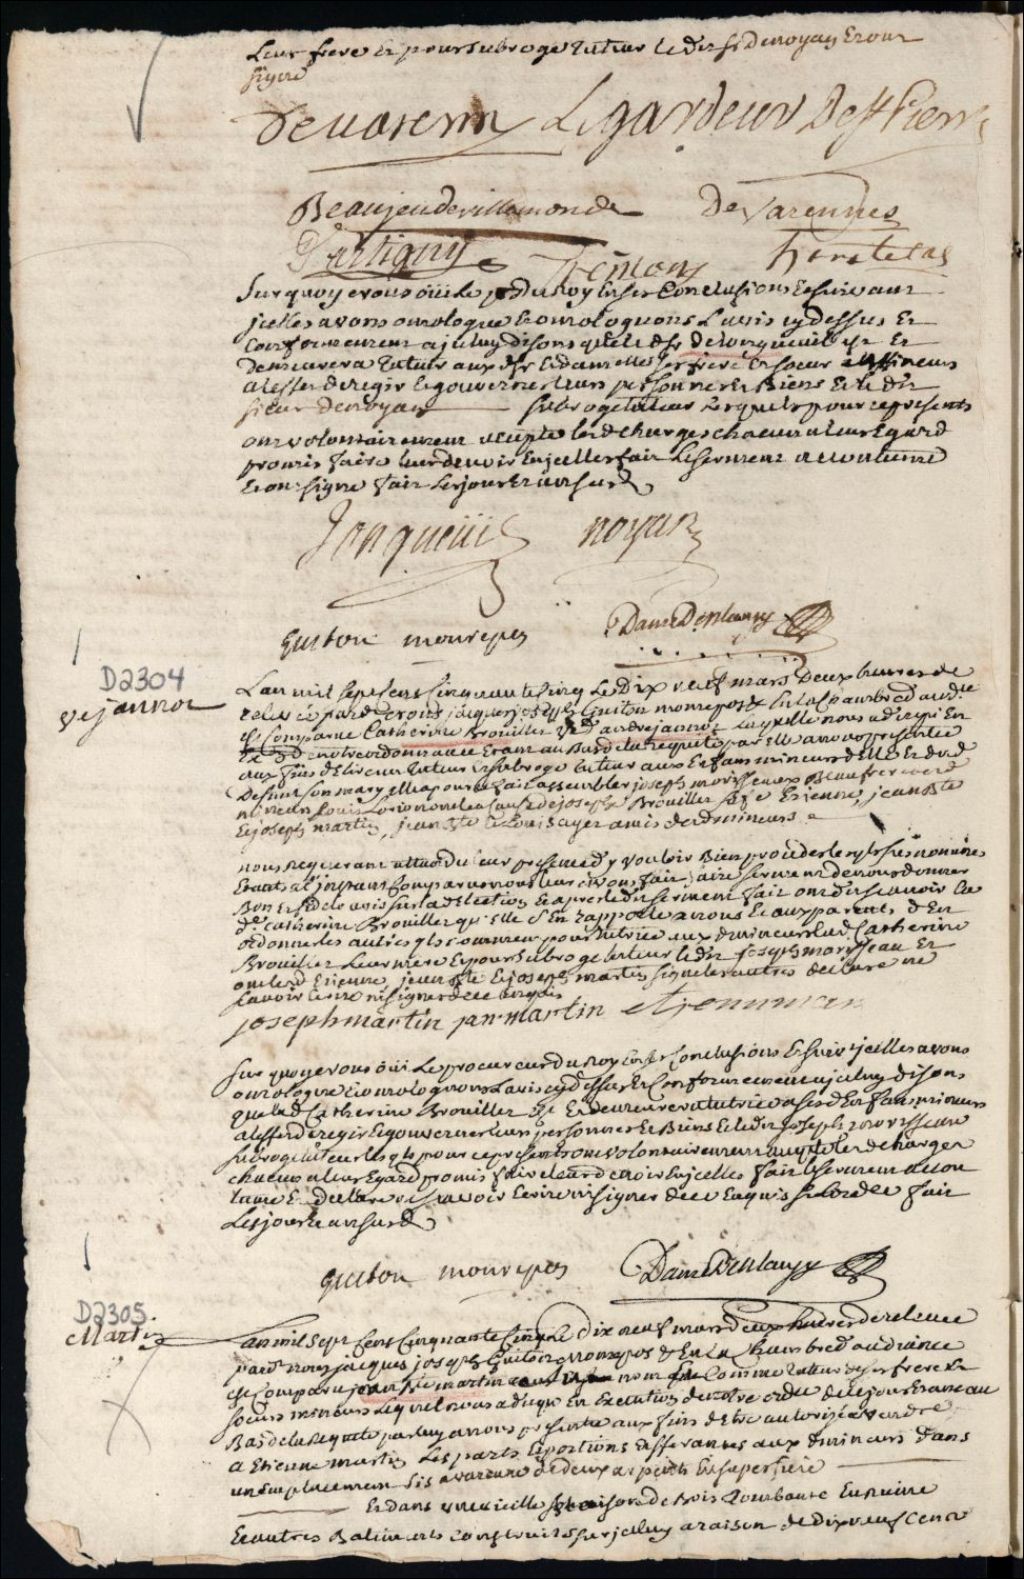 Leur frere Et pour subrogé tuteur le dit sr denoyan Et ont
signé
Devarenne Legardeur De St Pierre
Beaujeu de villemonde De Varennes
hertel
Sur quoy nous oüi Le pr du Roy En ses Conclusions Et suivant
jcelles avons omologué Et omologuons L'avis cy dessus Et
Conformement a jceluy disons que led sr delongueuil Est Et
Demeurera tuteur aux dits srs Et damoiselles ses frere Et soeur mineurs
a l'effet de regir Et gouverner leurs personnes Et Biens Et le dit
sieur denoyan subrogé tuteur Lesquels pour ce presents
ont volontairement accepté lesd charges chacun a leur Egard
promis faire leur devoir En jcelles fait Le serment accoutumé
Et ont signé fait Les jour Et an susd
Longueüil noyan
Guiton monrepos Danré DeBlanzy
D2304
ve jannot
L'an mil sept Cens Cinquante Cinq Le Dix neuf mars Deux heures de
relevé pardevant nous jacques joseph Guiton monrepos & En la Chambre d'audce
Est Comparue Catherine Brouillet Ve d'andre jannot Laquelle nous a dit qu'En
notre ordonnance Etant au Bas de la Requete par Elle a nous presentée
aux fins d'Elire un tuteur Et subrogé tuteur aux Enfans mineurs d'Elle Et dud
Defunt son mary elle a pour ce fait assembler joseph morisseaux Beaufrere
Louis de joseph Brouillet Etienne, jean Bte
Et joseph martin, jean Bte Et Louis ayet amis desd mineurs
nous Requerant attendu leur presence d'y vouloir Bien proceder les susnommés
Etants a l'jnstant Comparus nous leur avons fait faire serment de nous donner
Bon Et fidel avis sur la d Election Et apres led serment fait ont dit scavoir la
de Catherine Brouillet qu'Elle s'En rapporte a nous Et aux parents d'En
ordonner les autres qu'ils nomment pour tutrice aux d mineurs lad Catherine
Brouillet Leur mere Et pour subrogé tuteur led joseph morisseau Et
ont lesd Etienne, jean Bte Et joseph martin signé les autres declaré ne
scavoir Ecrire ni signer de ce Enquis
joseph martin jan martin etienne martin
Sur quoy nous oüi Le procureur du Roy En ses Conclusions Et suivt jcelles avons
omologué Et omologuons L'avis cy dessus Et Conformement a jceluy disons
que lad Catherine Brouillet Est Et demeurera tutrice a ses d Enfans mineurs
a l'effet de regir Et gouverner leurs personnes Et Biens Et led joseph morisseau
subrogé tuteur lesqls pour ce presents ont volontairement accepté les d charges
chacun a leur Egard promis faire leur devoir En jcelles fait le serment accou
tumé Et declaré ne scavoir Ecrire ni signer de ce Enquis fait
Les jour Et an susd
Guiton monrepos Danré DeBlanzy
D2305
Martin
L'an mil Sept Cens Cinquante Cinq le dix neuf mars deux heures de relevée
pardt nous jacques joseph Guiton monrepos & En la Chambre d'audiance
Est Comparu jean Bte martin au nom Et Comme tuteur de ses frere Et
soeurs mineurs Lequel nous a dit qu'En Execution de notre ordce de ce jour Etant au
Bas de la Requete par luy a nous presentée aux fins d'Etre autorisé a vendre
a Etienne martin Les parts Et portions afferantes aux d mineurs dans
un Emplacement sis a varenne de deux arpents En superficie
Et dans une vieille maison de Bois tombante En ruine
Et autres Batimens construits sur jceluy a raison de dix neuf Cens